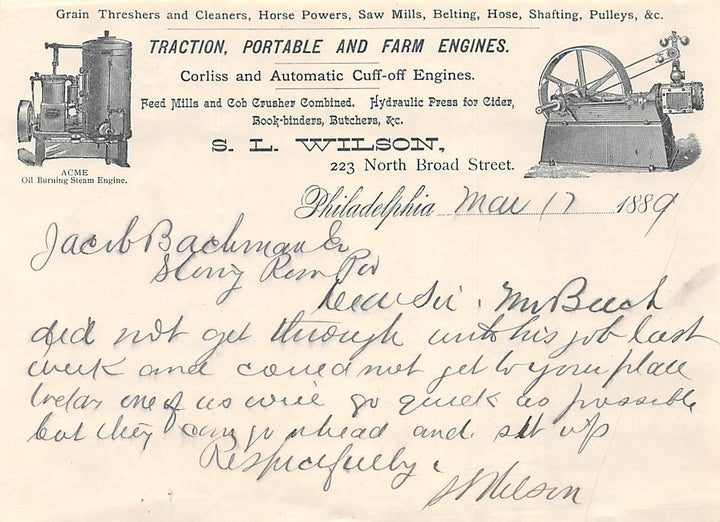 Grain Threshers and Cleaners, Horse Powers, Saw Mills, Belting, Hose, Shafting, Pulleys, &c.
TRACTION, PORTABLE AND FARM ENGINES.
Corliss and Automatic Cuff-off Engines.
Feed Mills and Cob Crusher Combined. Hydraulic Press for Cider,
Book-binders, Butchers, &c.
S. L. WILSON,
223 North Broad Street.
ACME
Oil Burning Steam Engine.
Philadelphia Mar 17 1889
Jacob Bachman
Stony Run Pa
Dear Sir. Mr Beech
did not get through with his job last
week and could not get to your place
today one of us will go quick as possible
but they can go ahead and set up
Respectfully,
S L Wilson